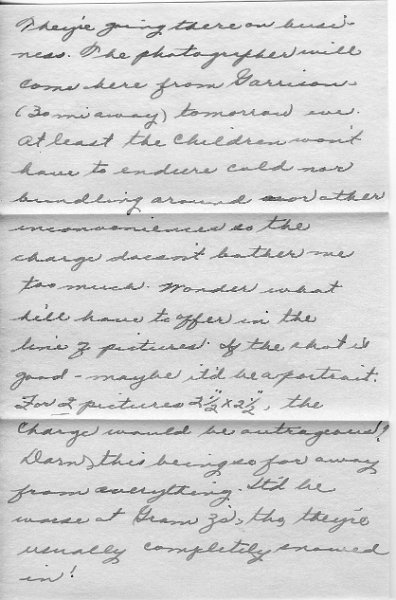 They're going there on busi-
ness. The photographer will
come here from Garrison
(30 mi away) tomorrow eve.
At least the children won't
have to endure cold nor
bundling around nor other
inconveniences so the
charge doesn't bother me
too much. Wonder what
he'll have to offer in the
line of pictures. If the shot is
good - maybe it'd be a portrait.
For 2 pictures 2½" x 2½", the
charge would be outrageous!
Darn, this being so far away
from everything. It'd be
worse at Gram Z's, tho, they're
usually completely snowed
in!